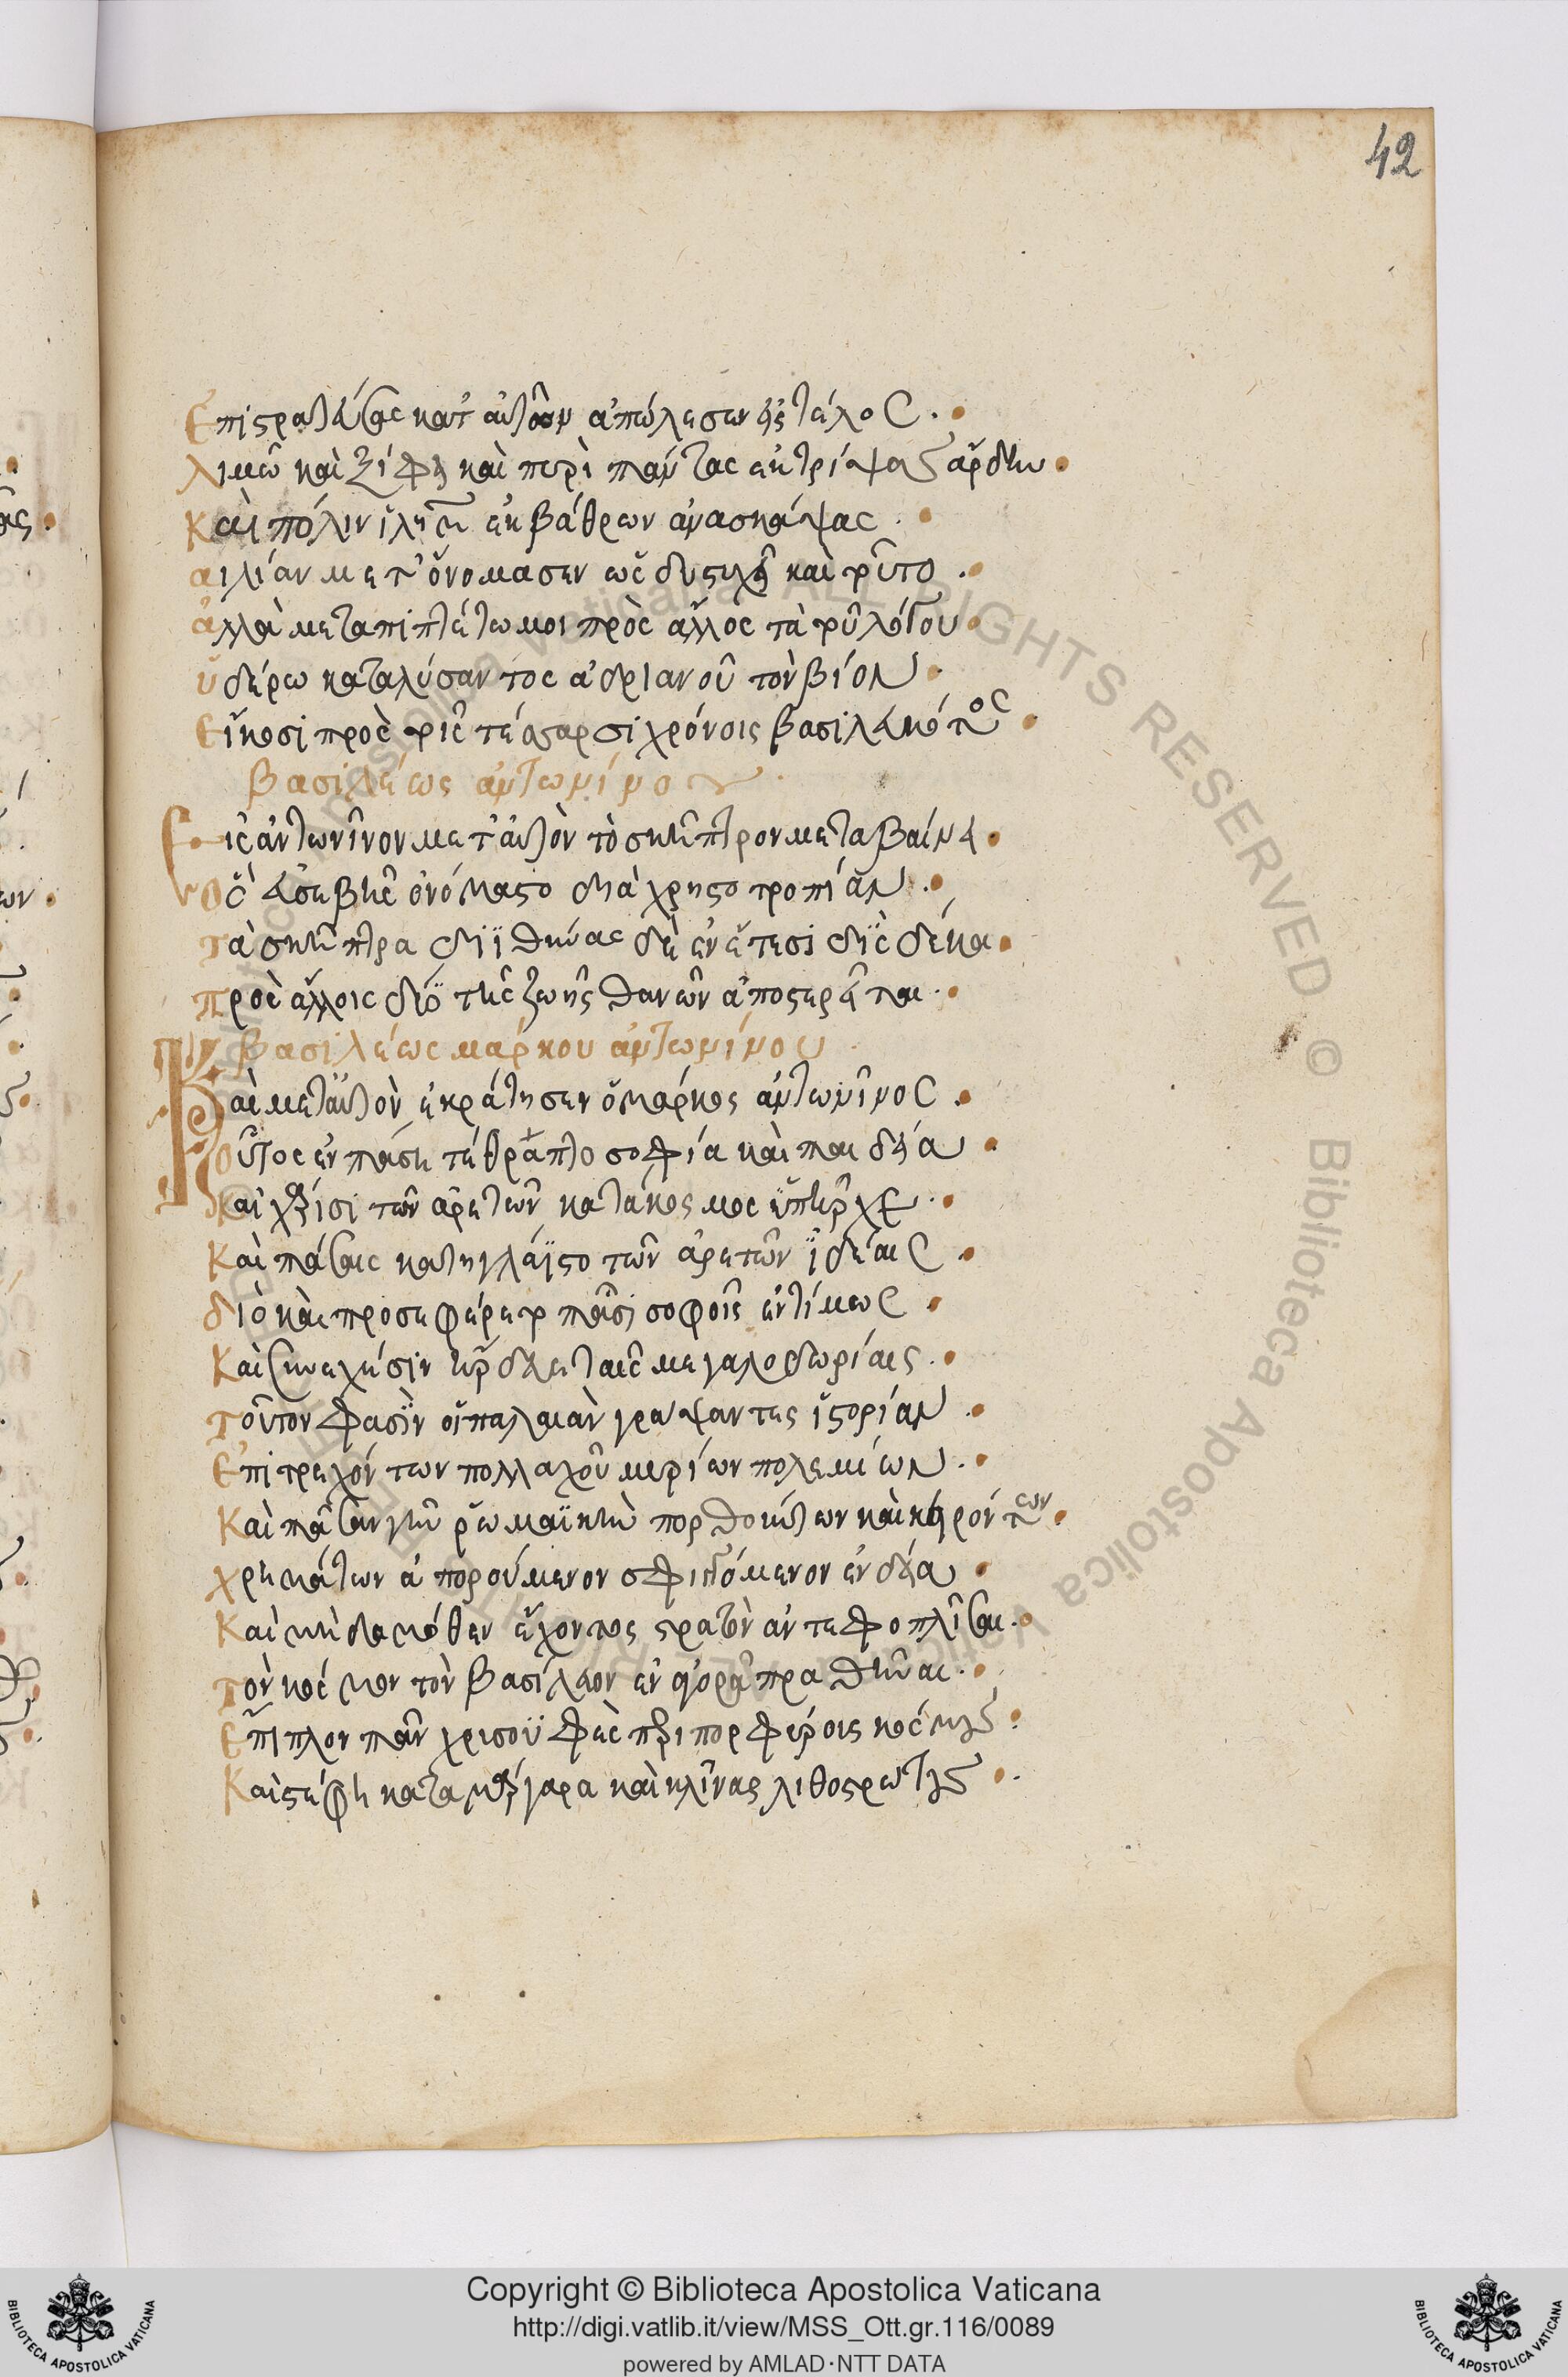 42
Ἐπιστρατεύσας κατ' αὐτῶν ἀπώλεσεν εἰς τέλος.
λιμῶ καὶ ξίφει καὶ πυρὶ πάντας ἐκτρίψας ἄρδην
Καὶ πόλιν ἱλὴμ ἐκ βάθρων ἀνασκάψας.
αἰλίαν μετ' ὄνομασεν ὡς δυστυχῆ καὶ
ἀλλὰ μεταπιπτέτω μοι πρὸς ἄλλος τὰ τοῦ λόγου
ὑδέρω καταλύσαντος ἀδριανοῦ τὸν βίον
Εἴκοσι πρὸς τοῖς τέσσαρσι χρόνοις βασιλευκότος
βασιλέως ἀντωνίνου
Εἰς ἀντωνῖνον μετ' αὐτὸν τὸ σκῆπτρον μεταβαίνει
Ὃς εὐσεβὴς ὀνόμαστο διὰ χρηστοτροπίαν.
τὰ σκῆπτρα διϊθύνας δὲ ἐν ἔτεσι δὶς δέκα
πρὸς ἄλλοις δύο τῆς ζωῆς θανὼν ἀποστερεῖται.
βασιλέως μάρκου ἀντωνίνου
Καὶ μετ' αὐτὸν ἐκράτησεν ὁ μάρκος ἀντωνῖνος.
οὗτος ἐν πάση τέθραπτο σοφία καὶ παιδεία
Καὶ τῶν ἀρετῶν κατάκοσμος ὑπῆρχε.
Καὶ πάσαις κατηγλάϊστο τῶν ἀρετῶν ἰδέαις.
διὸ καὶ προσεφέρετο πᾶσι σοφοῖς ἐντίμως
Καὶ συνεχέσιν ἤρδευε ταῖς μεγαλοδωρίαις.
τοῦτον φασὶν οἱ παλαιὰν γράψαντες ἱστορίαν.
Ἐπιτρεχόντων πολλαχοῦ μυρίων πολεμίων.
Καὶ πᾶσαν γῆν ῥωμαϊκὴν πορθούντων καὶ κειρόντων
χρημάτων ἀπορούμενον σφιγγόμενον ἐνδεία
Καὶ μηδαμόθεν ἔχοντος στρατὸν ἀντεφοπλίσαι.
τὸν κόσμον τὸν βασίλειον ἐν ἀγορᾶ πραθῆναι.
Ἔπιπλον πᾶν χρυσοϋφὲς πορφύροις κόσμοις.
Καὶ στέφη κατὰ μάργαρα καὶ κλίνας λιθοστρώτους.
Copyright © Biblioteca Apostolica Vaticana
http://digi.vatlib.it/view/MSS_Ott.gr.116/0089
powered by AMLAD·NTT DATA
BIBLIOTECA APOSTOLICA VATICANA
BIBLIOTECA APOSTOLICA VATICANA